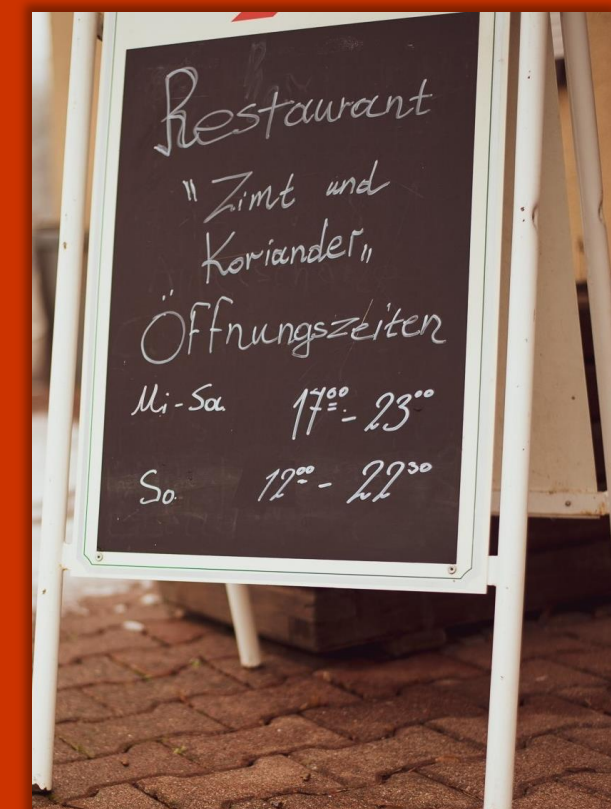 Restaurant
"Zimt und
Koriander„
Öffnungszeiten
Mi-Sa. 17⁰⁰- 23⁰⁰
So. 12⁰⁰ - 22³⁰